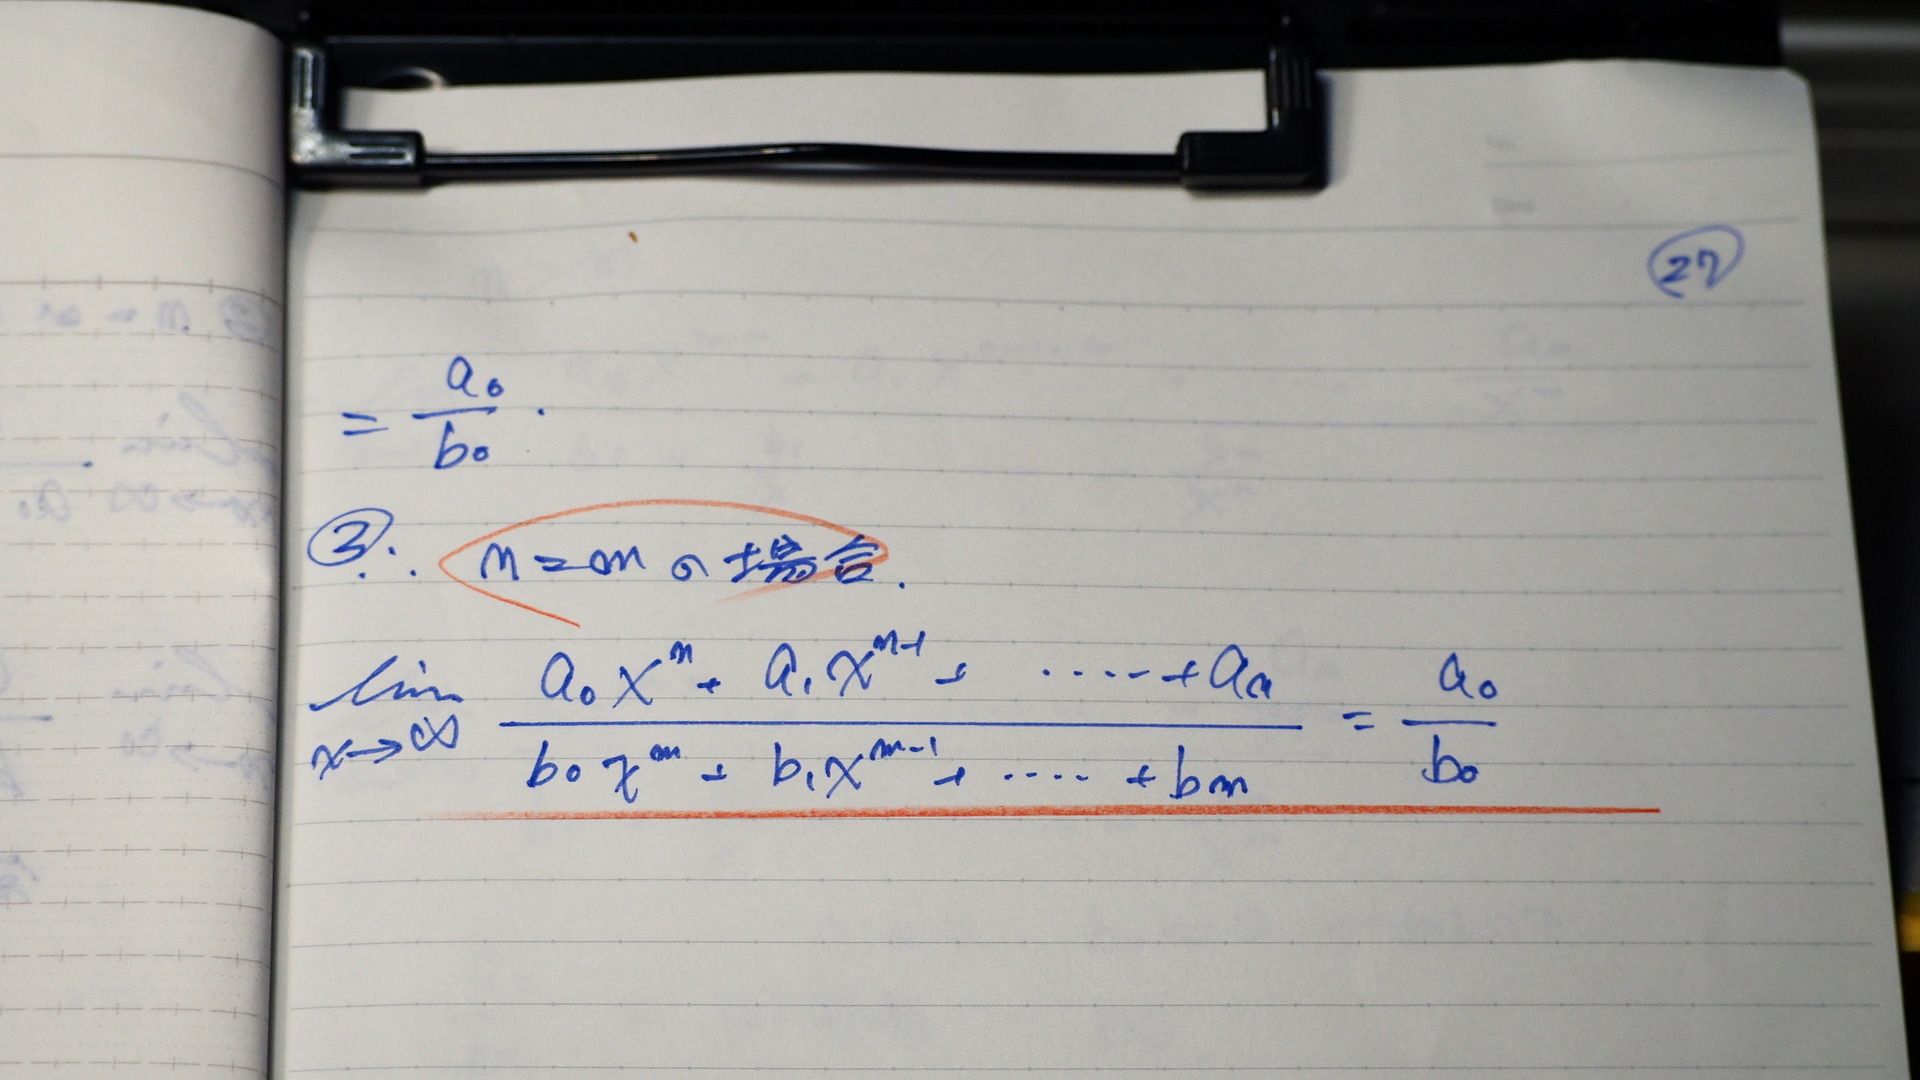 ㉗
= a₀/b₀ .
③∴ n=mの場合.
lim x→∞ (a₀xⁿ + a₁xⁿ⁻¹ + ‥‥‥ + aₙ)/(b₀xᵐ + b₁xᵐ⁻¹ + ‥‥ + bₘ) = a₀/b₀